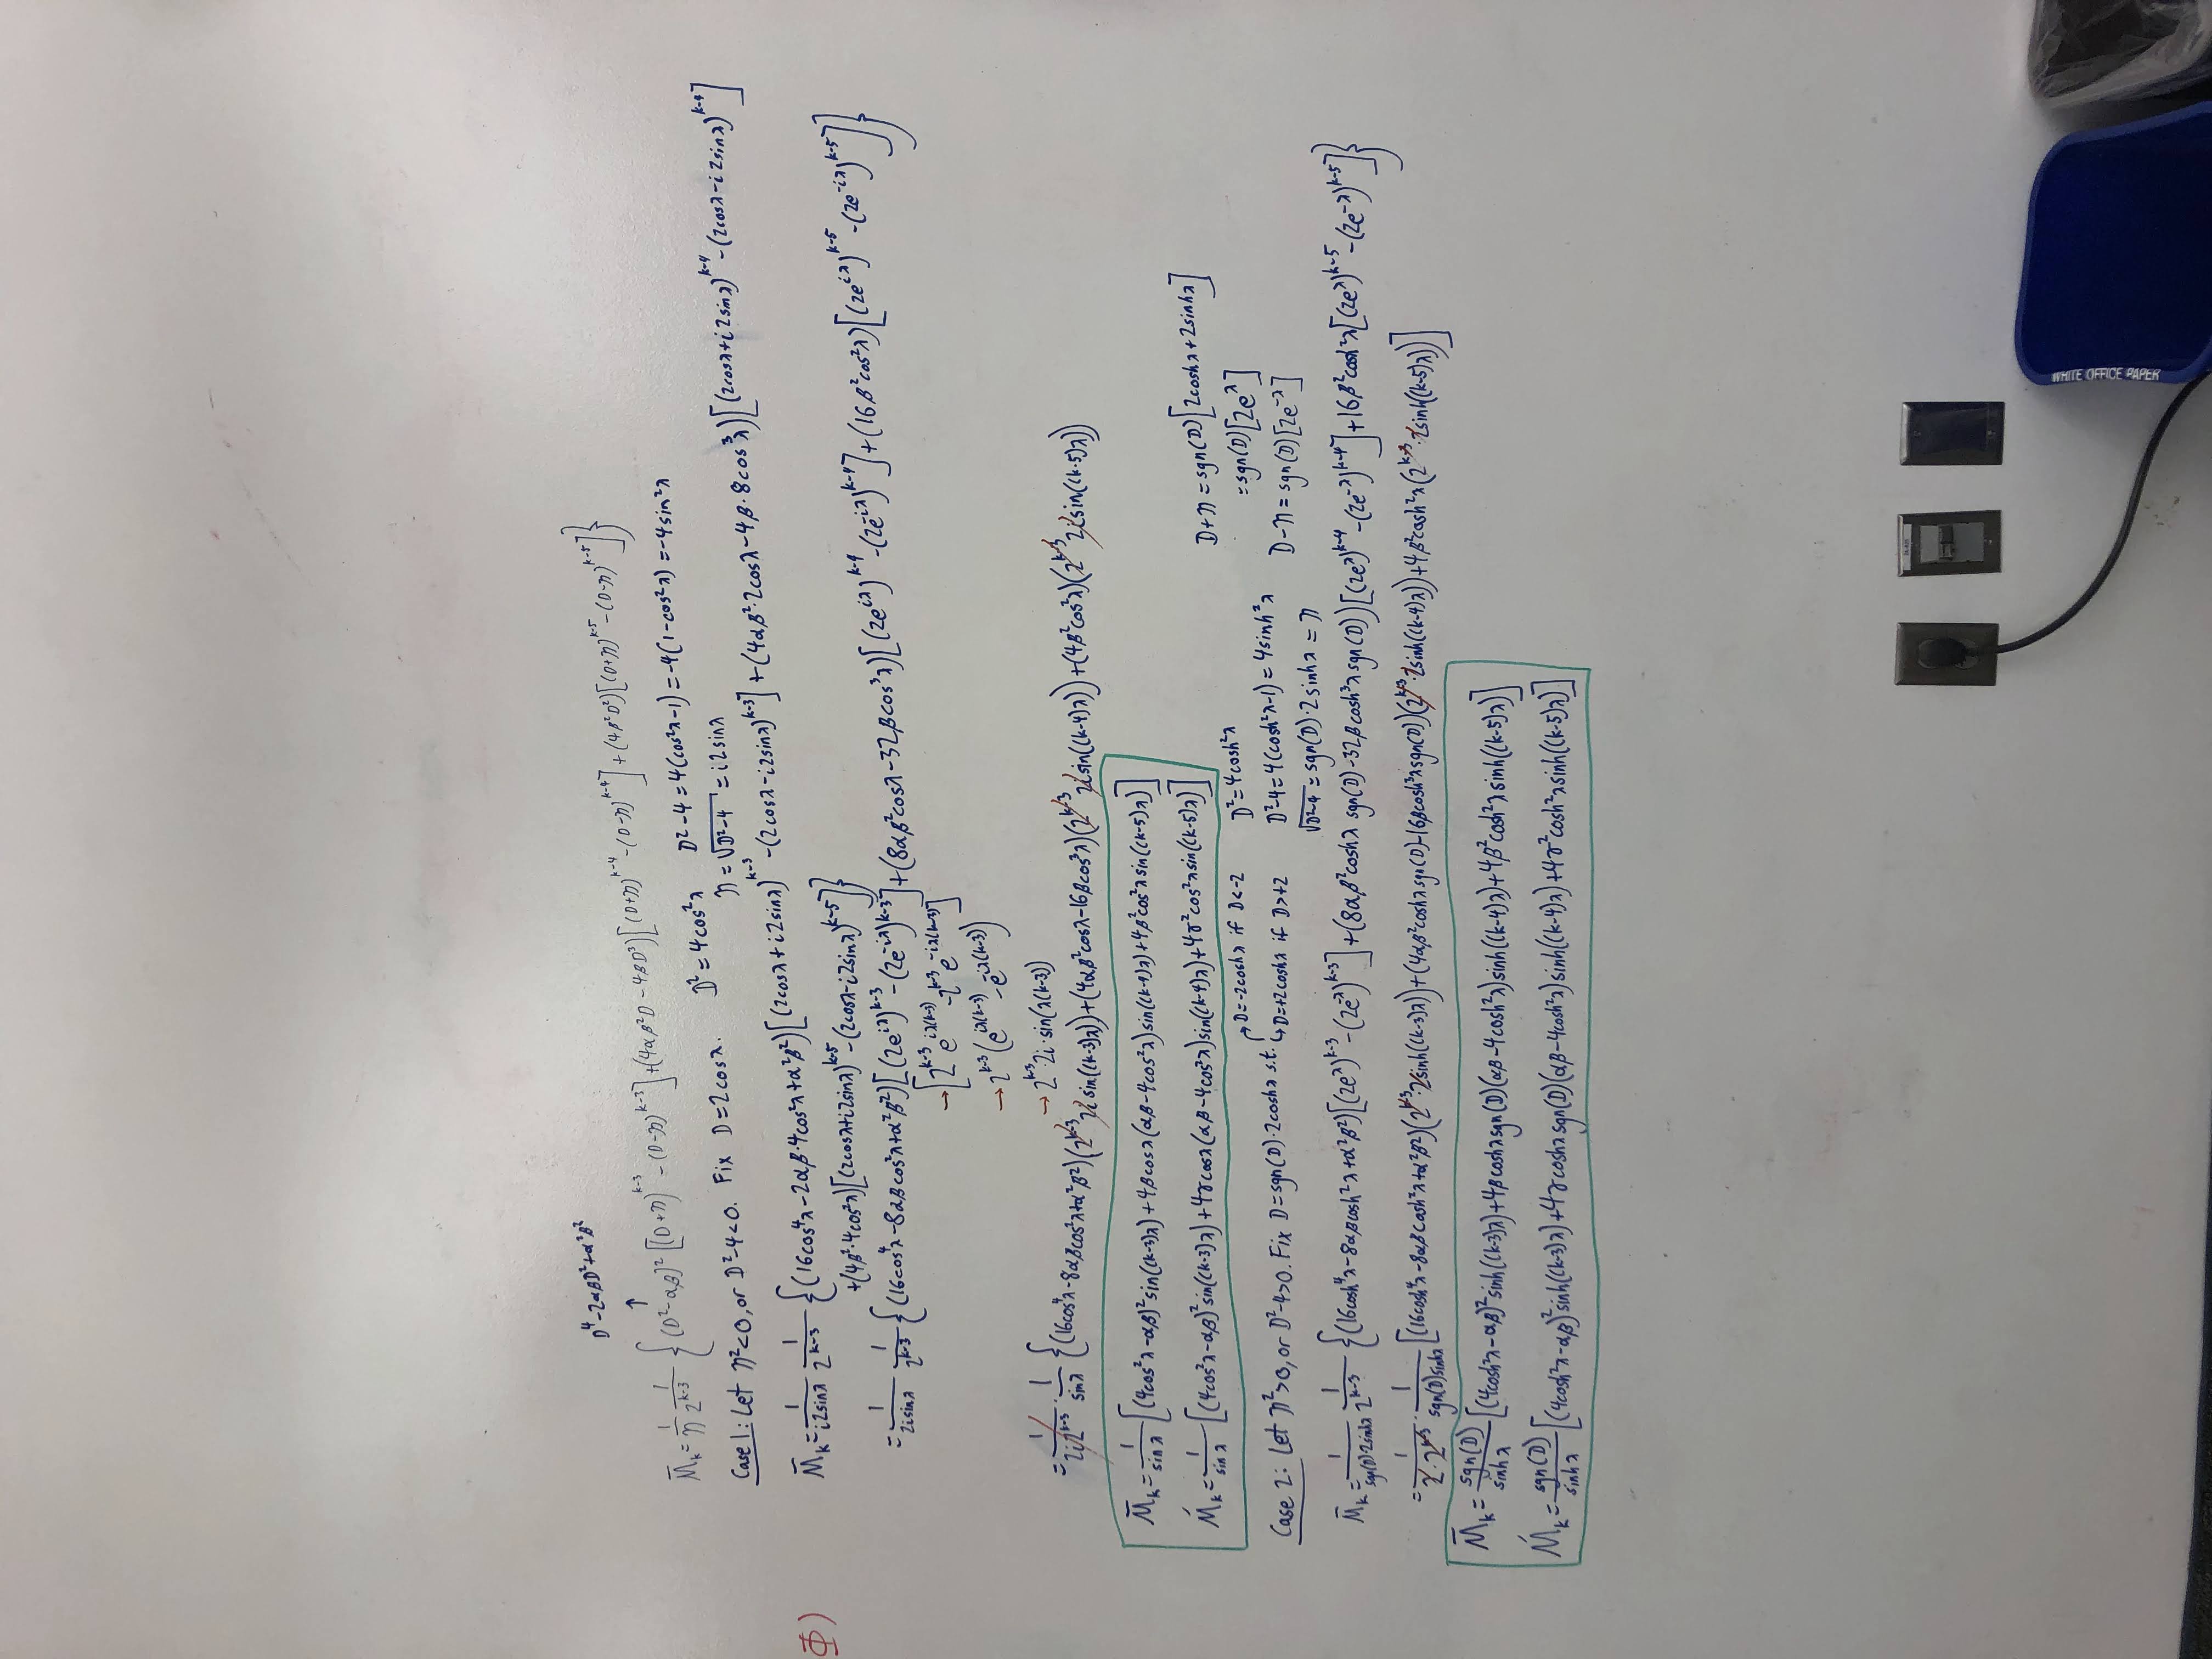 D⁴-2αβD²+α²β²
↑
M̄ₖ = 1/η 1/2^(k-3) {(D²-αβ)² [(D+η)^(k-3) - (D-η)^(k-3)] + (4αβ²D - 4βD³)[(D+η)^(k-4) - (D-η)^(k-4)] + (4β²D²)[(D+η)^(k-5) - (D-η)^(k-5)]}
Case 1: Let η²<0, or D²-4<0. Fix D=2cosλ. D²=4cos²λ D²-4=4(cos²λ-1)=-4(1-cos²λ)=-4sin²λ
η=√(D²-4)=i2sinλ
M̄ₖ = 1/(i2sinλ) 1/2^(k-3) {(16cos⁴λ-2αβ·4cos²λ+α²β²)[(2cosλ+i2sinλ)^(k-3) - (2cosλ-i2sinλ)^(k-3)] + (4αβ²·2cosλ-4β·8cos³λ)[(2cosλ+i2sinλ)^(k-4) - (2cosλ-i2sinλ)^(k-4)]
+(4β²·4cos²λ)[(2cosλ+i2sinλ)^(k-5) - (2cosλ-i2sinλ)^(k-5)]}
Φ)
= 1/(2isinλ) 1/2^(k-3) {(16cos⁴λ-8αβcos²λ+α²β²)[(2e^(iλ))^(k-3) - (2e^(-iλ))^(k-3)] + (8αβ²cosλ-32βcos³λ)[(2e^(iλ))^(k-4) - (2e^(-iλ))^(k-4)] + (16β²cos²λ)[(2e^(iλ))^(k-5) - (2e^(-iλ))^(k-5)]}
→[2^(k-3) e^(iλ(k-3)) - 2^(k-3) e^(-iλ(k-3))]
→2^(k-3) (e^(iλ(k-3)) - e^(-iλ(k-3)))
→2^(k-3)·2i·sin(λ(k-3))
= 1/(2i2^(k-3)) · 1/sinλ {(16cos⁴λ-8αβcos²λ+α²β²)(2^(k-3) 2i sin((k-3)λ)) + (4αβ²cosλ-16βcos³λ)(2^(k-3) 2i sin((k-4)λ)) + (4β²cos²λ)(2^(k-3) 2i sin((k-5)λ))
M̄ₖ = 1/sinλ [(4cos²λ-αβ)² sin((k-3)λ) + 4βcosλ(αβ-4cos²λ)sin((k-4)λ) + 4β²cos²λ sin((k-5)λ)]
Ḿₖ = 1/sinλ [(4cos²λ-αβ)² sin((k-3)λ) + 4γcosλ(αβ-4cos²λ)sin((k-4)λ) + 4γ²cos²λ sin((k-5)λ)]
D+η=sgn(D)[2coshλ+2sinhλ]
=sgn(D)[2e^λ]
D-η=sgn(D)[2e^(-λ)]
Case 2: Let η²>0, or D²-4>0. Fix D=sgn(D)·2coshλ s.t.
↱D=-2coshλ if D<-2
↳D=+2coshλ if D>+2
D²=4cosh²λ
D²-4=4(cosh²λ-1)=4sinh²λ
√(D²-4)=sgn(D)·2sinhλ=η
M̄ₖ = 1/(sgn(D)·2sinhλ) 1/2^(k-3) {(16cosh⁴λ-8αβcosh²λ+α²β²)[(2e^λ)^(k-3) - (2e^(-λ))^(k-3)] + (8αβ²coshλ sgn(D)-32βcosh³λ sgn(D))[(2e^λ)^(k-4) - (2e^(-λ))^(k-4)] + 16β²cosh²λ[(2e^λ)^(k-5) - (2e^(-λ))^(k-5)]}
= 1/(2·2^(k-3)) · 1/(sgn(D)sinhλ) [(16cosh⁴λ-8αβcosh²λ+α²β²)(2^(k-3)·2sinh((k-3)λ)) + (4αβ²coshλ sgn(D)-16βcosh³λ sgn(D))(2^(k-3)·2sinh((k-4)λ)) + 4β²cosh²λ(2^(k-3)·2sinh((k-5)λ))]
M̄ₖ = sgn(D)/sinhλ [(4cosh²λ-αβ)² sinh((k-3)λ) + 4βcoshλ sgn(D)(αβ-4cosh²λ)sinh((k-4)λ) + 4β²cosh²λ sinh((k-5)λ)]
Ḿₖ = sgn(D)/sinhλ [(4cosh²λ-αβ)² sinh((k-3)λ) + 4γcoshλ sgn(D)(αβ-4cosh²λ)sinh((k-4)λ) + 4γ²cosh²λ sinh((k-5)λ)]
WHITE OFFICE PAPER